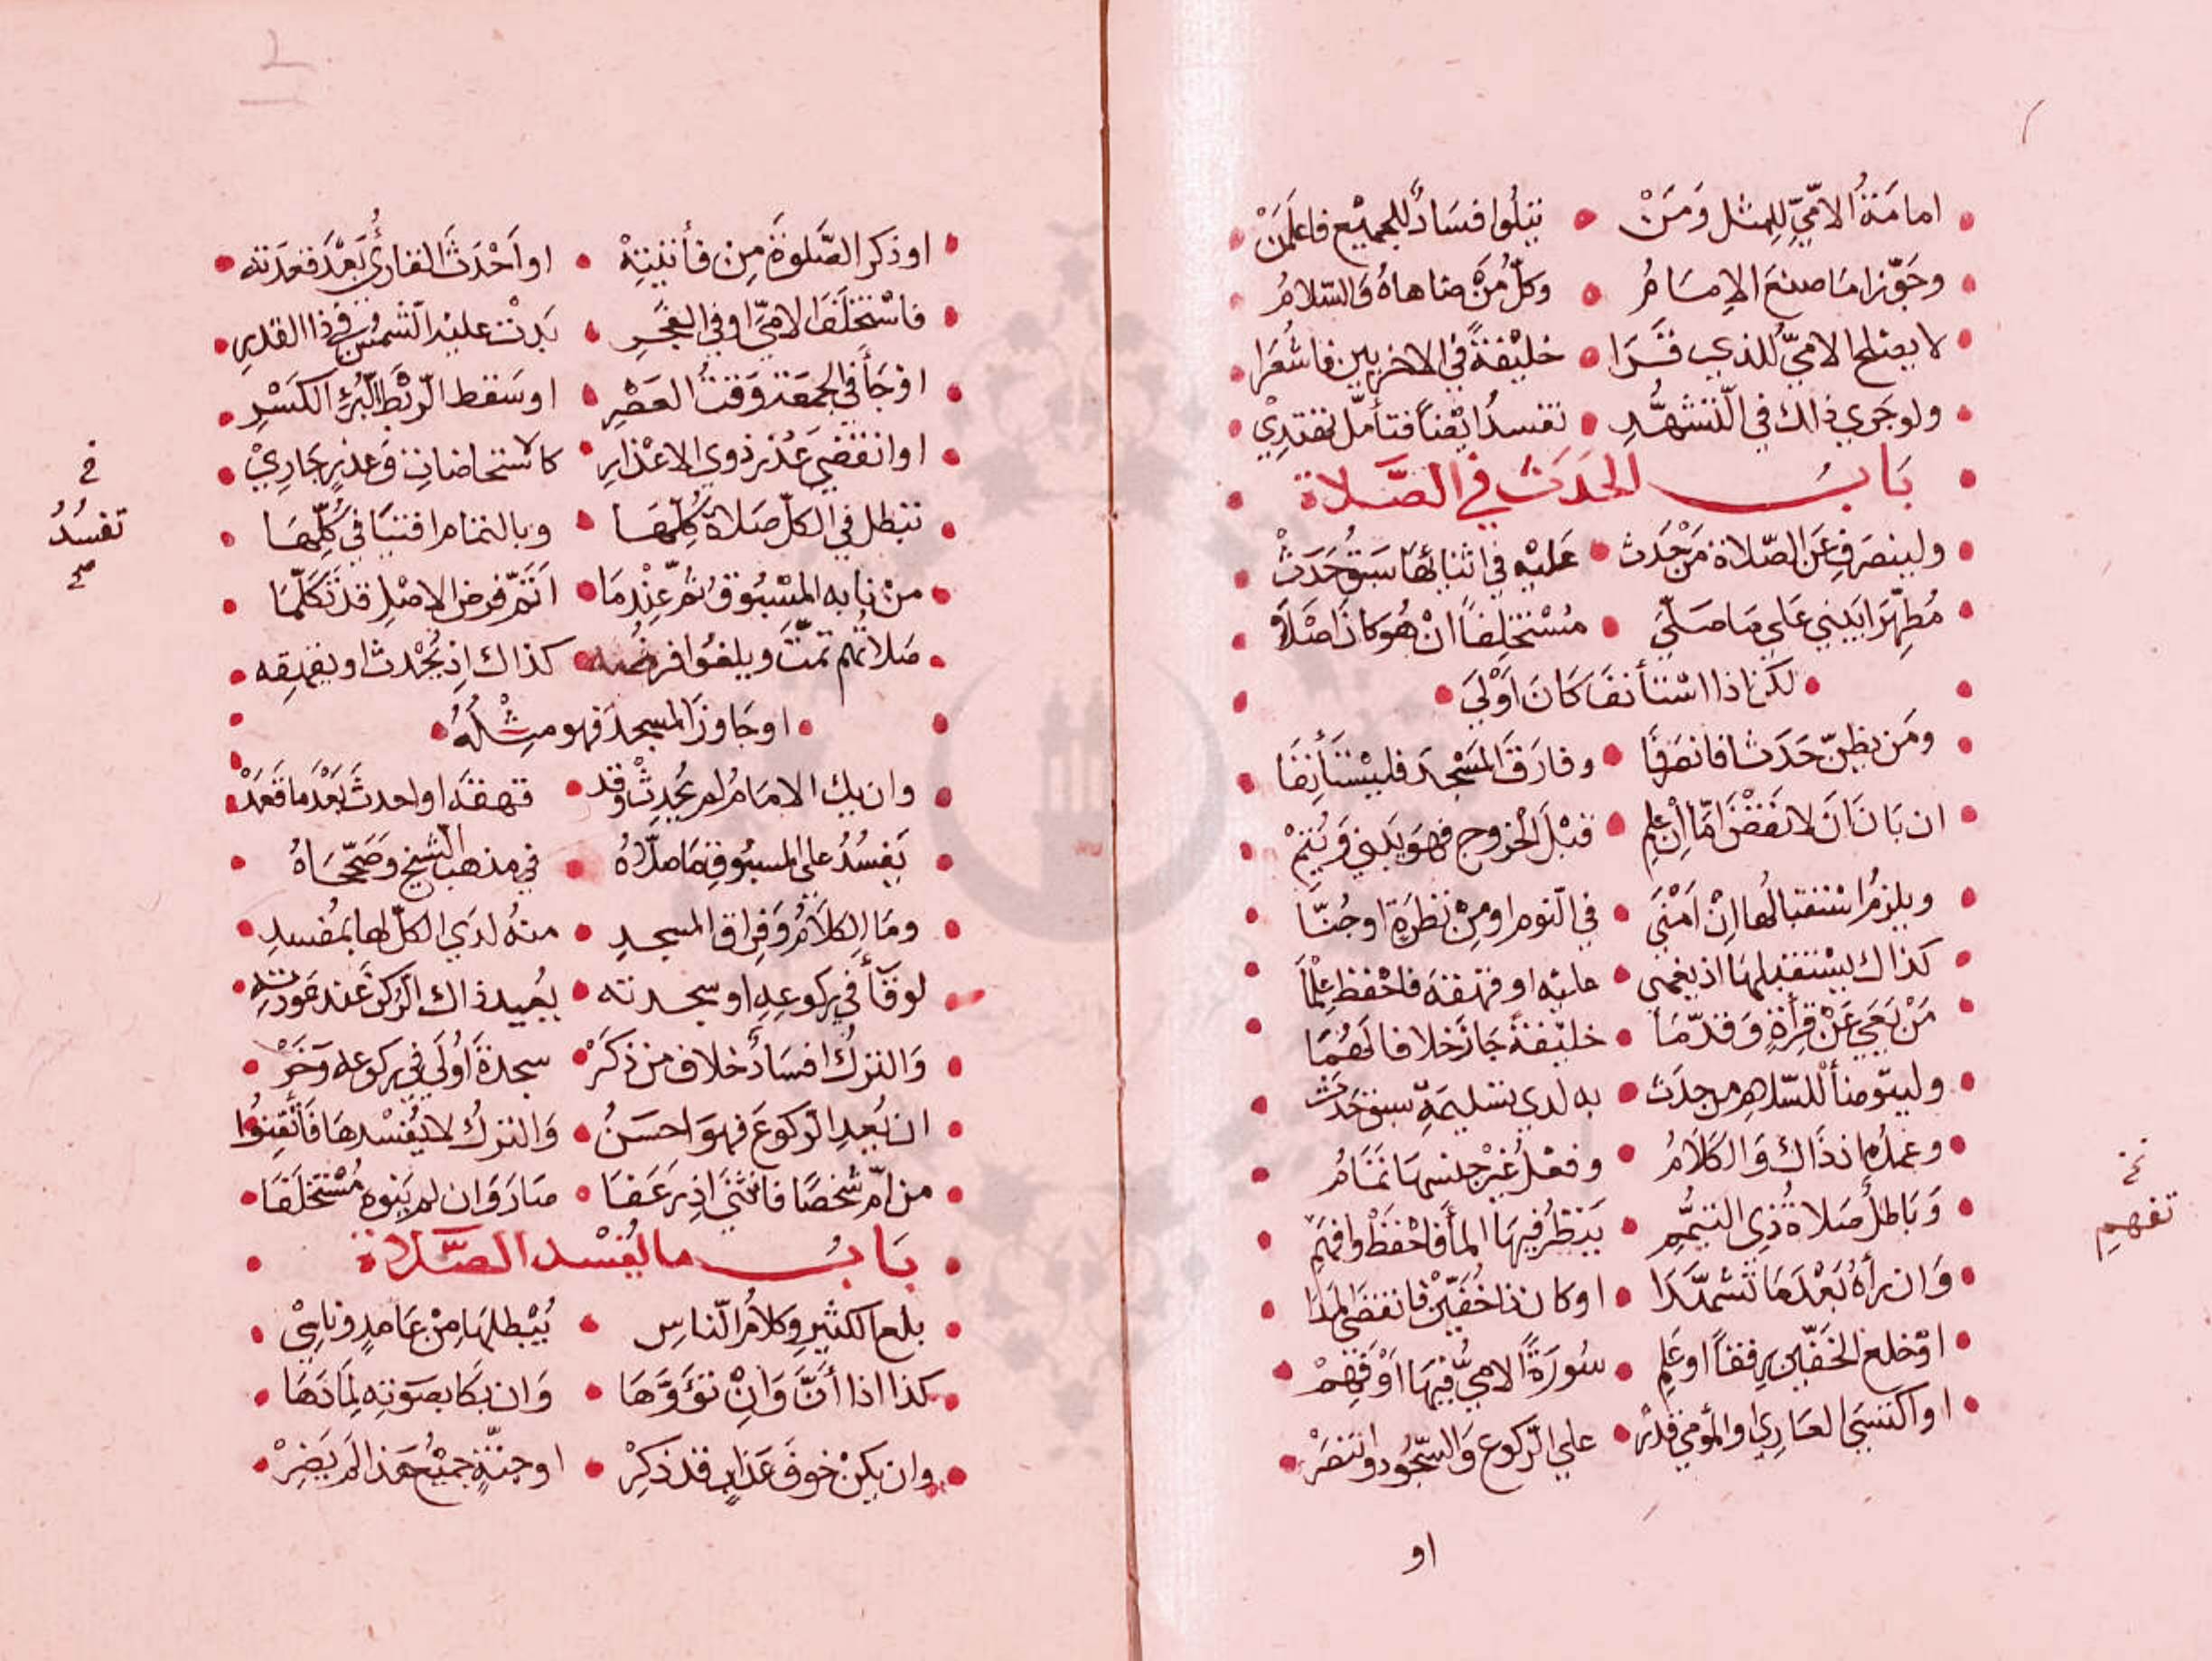 امامة الامّيّ للمثل ومن • يتلوا فسادٌ للجميع فاعلمن
وجوّزا ما صنع الامامُ • وكلّ من ضاهاهُ والسّلامُ
لا يصلح الامّيُّ للذي قرا • خليفةً في الاخريين فاشعرا
ولو جري ذاك في التّشهّدِ • تفسد ايضاً فتأمل تقتدي
بابُ الحدث في الصّلاة
ولينصرف عن الصّلاة من حدث • عليه في اثنائها سبق حدث
مطهّرا يبني علي ما صلّي • مستخلفاً ان هو كان اصلا
• لكن اذا استأنف كان اولي •
ومن يظنّ حدثا فانصرفا • وفارق المسجد فليستأنفا
ان بان ان لا نقض امّا ان علم • قبل الخروج فهو يبني ويتم
ويلزم استقبالها ان امني • في النوم او من نظرة او جُنّا
كذاك يستقبلها اذ يغمي • عليه او قهقه فاحفظ علما
من يعي عن قرأة وقدّما • خليفة جاز خلافا لهما
وليتوّضأ للسّلام من حدث • به لدي تسليمة سبق حدث
وعمده اذ ذاك والكلامُ • وفعل غير جنسها تمامُ
وباطل صلاة ذي التيمّم • ينظر فيها الماء فاحفظ وافهم
نخ
تفهم
وان رأه بعدما تشهّدا • او كان ذا خفّين فانقضي المدا
او خلع الخفّين رفقاً او علم • سورة الامّيُّ فيها او فهم
او اكتسي العاري او المومي قدر • علي الرّكوع والسّجود وانتصر
او
او ذكر الصّلوة من فأئتيته • او احدث القاريُ بعد قعدته
فاستخلف الامّيّ او في الفجر • بدت عليه الشمس في ذا القدر
او جأ في الجمعة وقت العصر • او سقط الرّبط لبُرء الكسر
او انقضي عذر ذوي الاعذار • كالاستحاضات وعذر جاري
تبطل في الكلّ صلاة كلّها • وبالتمام افتيا في كلّها
نخ
تفسدُ
صح
من نابه المسبوق ثم عندما • اتمّ فرض الاصل قد تكلّما
صلاتهم تمّت ويلغوا فرضه • كذاك اذ يحدث او يقهقه
• او جاوز المسجد فهو مثله •
وان يك الامام لم يحدث وقد • قهقه او احدث بعدما قعد
يفسد علي المسبوق ما صلّاهُ • في مذهب الشيخ وصحّحاهُ
وما الكلام وفراق المسجد • منه لدي الكلّ لها بمفسد
لو قأ في ركوعه او سجدته • يعيد ذاك الرّكن عند عودته
والترك افساد خلاف من ذكر • سجدة اولي في ركوعه وخر
ان يُعد الرّكوع فهو احسن • والترك لا يفسدها فأتقنوا
من امّ شخصا فانثني اذ رعفا • صار وان لم ينوه مستخلفا
بابُ ما يفسد الصّلاة
بلع الكثير وكلام النّاس • يُبطلها من عامد وناسي
كذا اذا أنّ وانْ تؤوّها • وان بكا بصوته لما دها
وان يكن خوف عذاب قد ذكر • او جنّة جميع هذا لم يضر